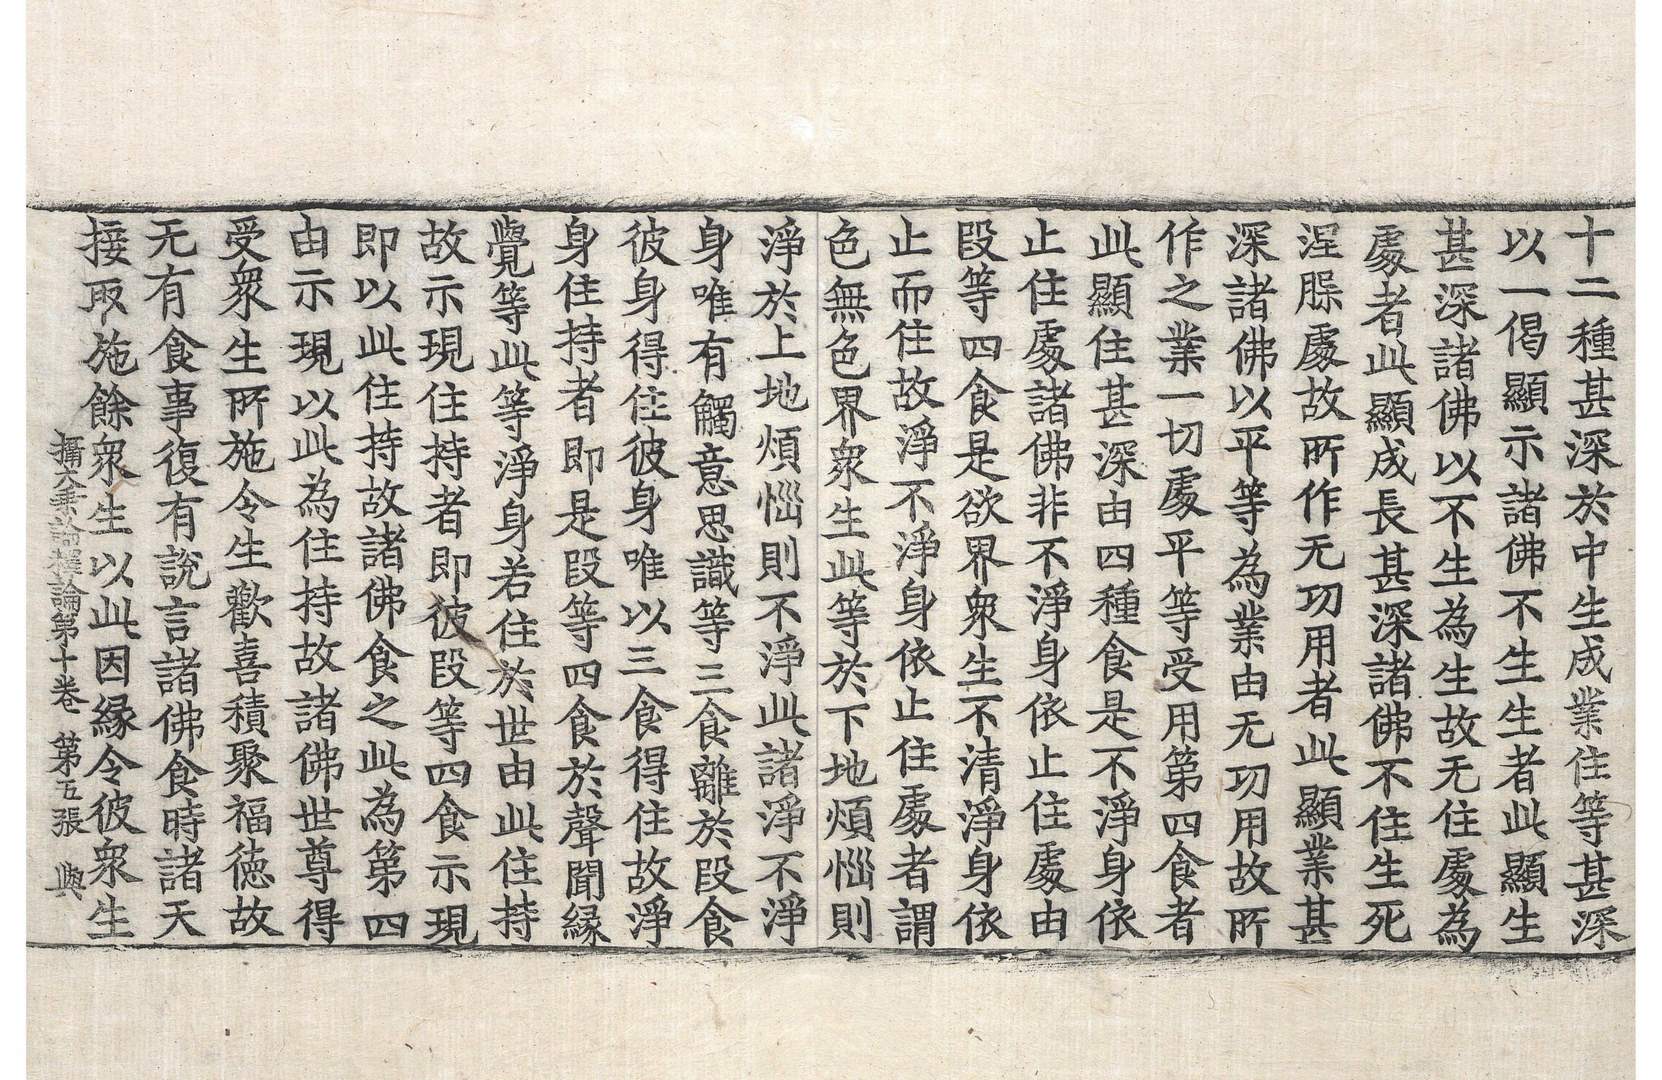 十二種甚深於中生成業住等甚深
以一偈顯示諸佛不生生者此顯生
甚深諸佛以不生為生故无住處為
處者此顯成長甚深諸佛不住生死
涅槃處故所作无功用者此顯業甚
深諸佛以平等為業由无功用故所
作之業一切處平等受用第四食者
此顯住甚深由四種食是不淨身依
止住處諸佛非不淨身依止住處由
止而住故淨不淨身依止住處者謂
段等四食是欲界衆生不清淨身依
色無色界衆生此等於下地煩惱則
淨於上地煩惱則不淨此諸淨不淨
身唯有觸意思識等三食離於段食
彼身得住彼身唯以三食得住故淨
身住持者即是段等四食於聲聞縁
覺等此等淨身若住於世由此住持
故示現住持者即彼段等四食示現
即以此住持故諸佛食之此為第四
由示現以此為住持故諸佛世尊得
受衆生所施令生歡喜積聚福德故
无有食事復有說言諸佛食時諸天
接取施餘衆生以此因縁令彼衆生
攝大乘論釋論第十卷 第五張 興